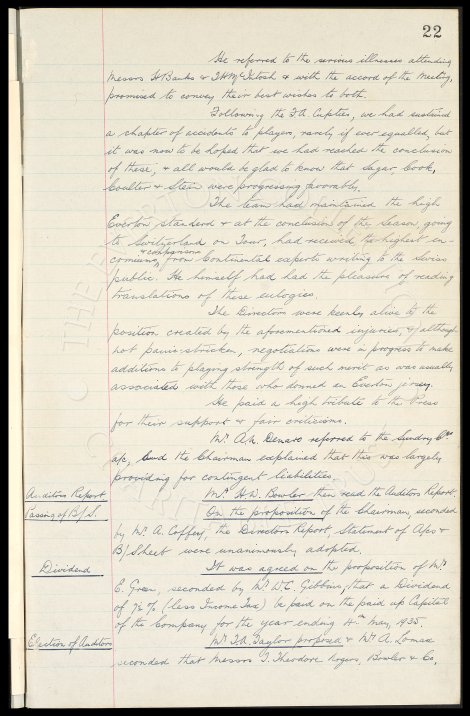 22
He referred to the serious illnesses attending
Messrs H Banks & J H McIntosh & with the accord of the Meeting,
promised to convey their best wishes to both.
Following the F.A. Cupties, we had sustained
a chapter of accidents to players, rarely if ever equalled, but
it was now to be hoped that we had reached the conclusion
of these, & all would be glad to know that Sagar Cook,
Coulter & Stein were progressing favorably.
The team had maintained the high
Everton standard & at the conclusion of the Season, going
to Switzerland on Tour, had received the highest en-
& comparisons
comiums, from Continental experts writing to the Swiss
public. He himself had had the pleasure of reading
translations of these eulogies.
The Directors were keenly alive to the
position created by the aforementioned injuries, & although
not panic-stricken, negotiations were in progress to make
additions to playing strength of such merit as was usually
associated with those who donned an Everton jersey.
He paid a high tribute to the Press
for their support & fair criticisms.
Mr. A.N. Denaro referred to the Sundry Crs
a/c, and the Chairman explained that this was largely
providing for contingent liabilities.
Auditors Report Mr. H.W. Bowler then read the Auditors Report.
Passing of B/S. On the proposition of the Chairman, seconded
by Mr. A. Coffey, the Directors Report, Statement of A/cs &
B/Sheet were unanimously adopted.
Dividend It was agreed on the proposition of Mr.
E. Green, seconded by Mr. W.C. Gibbins, that a Dividend
of 7½% (less Income Tax) be paid on the paid up Capital
of the Company for the year ending 4th May, 1935.
Election of Auditors Mr. F.A. Taylor proposed & Mr. A. Lomax
seconded that Messrs T. Theodore Rogers, Bowler & Co.